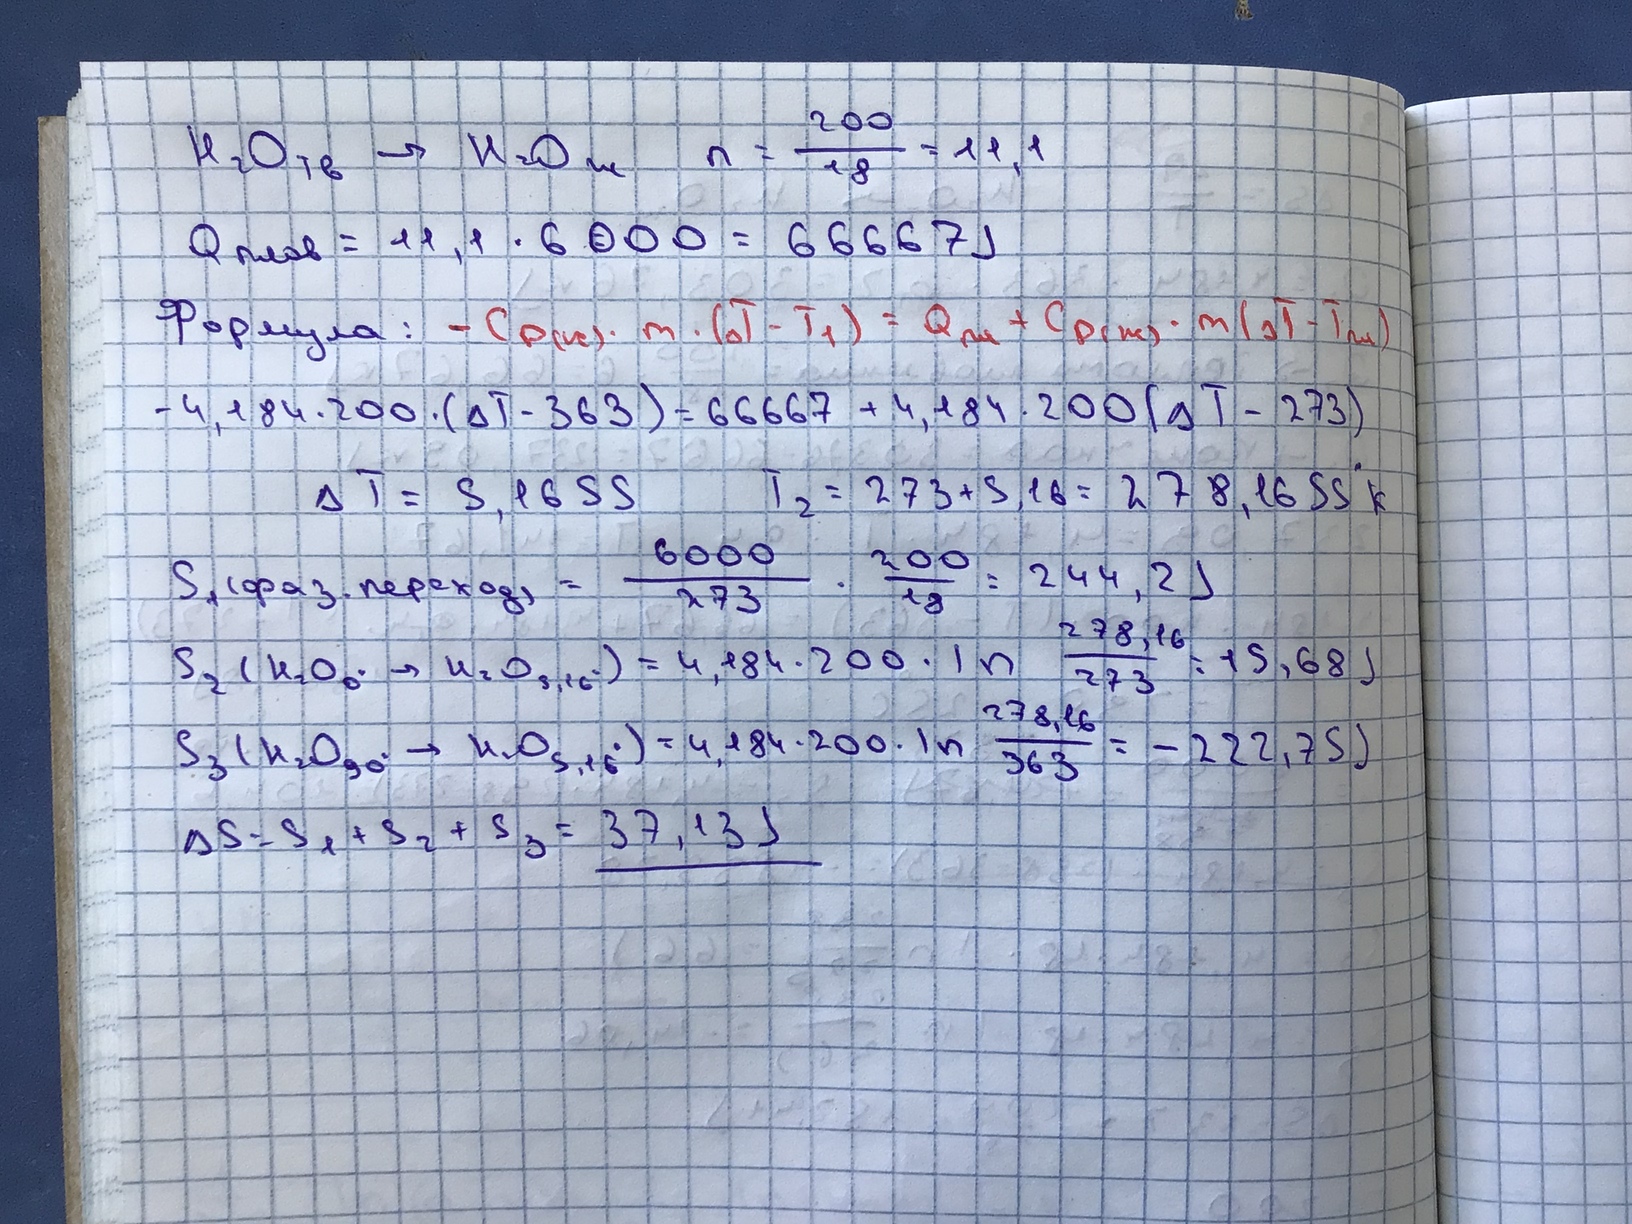 H₂Oтв → H₂Oж n = 200/18 = 11,1
Qплав = 11,1 · 6000 = 66667J
Формула: -Cp(ж) · m · (ΔT - T₁) = Qпл + Cp(ж) · m(ΔT - Tпл)
-4,184·200·(ΔT - 363) = 66667 + 4,184·200(ΔT - 273)
ΔT = 5,1655 T₂ = 273+5,16 = 278,1655°K
S₁(фаз. переход) = 6000/273 · 200/18 = 244,2J
S₂(H₂O₀° → H₂O₅,₁₆°) = 4,184·200·ln 278,16/273 = 15,68J
S₃(H₂O₉₀° → H₂O₅,₁₆°) = 4,184·200·ln 278,16/363 = -222,75J
ΔS = S₁ + S₂ + S₃ = 37,13J